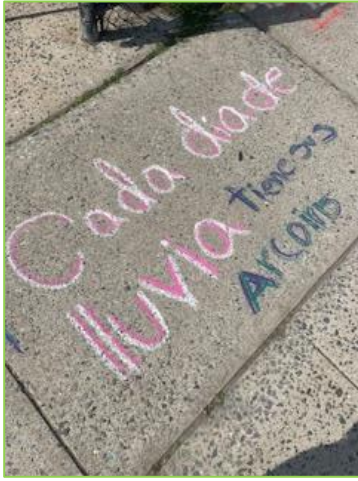 Cada dia de
lluvia tiene sus
Arcoiris